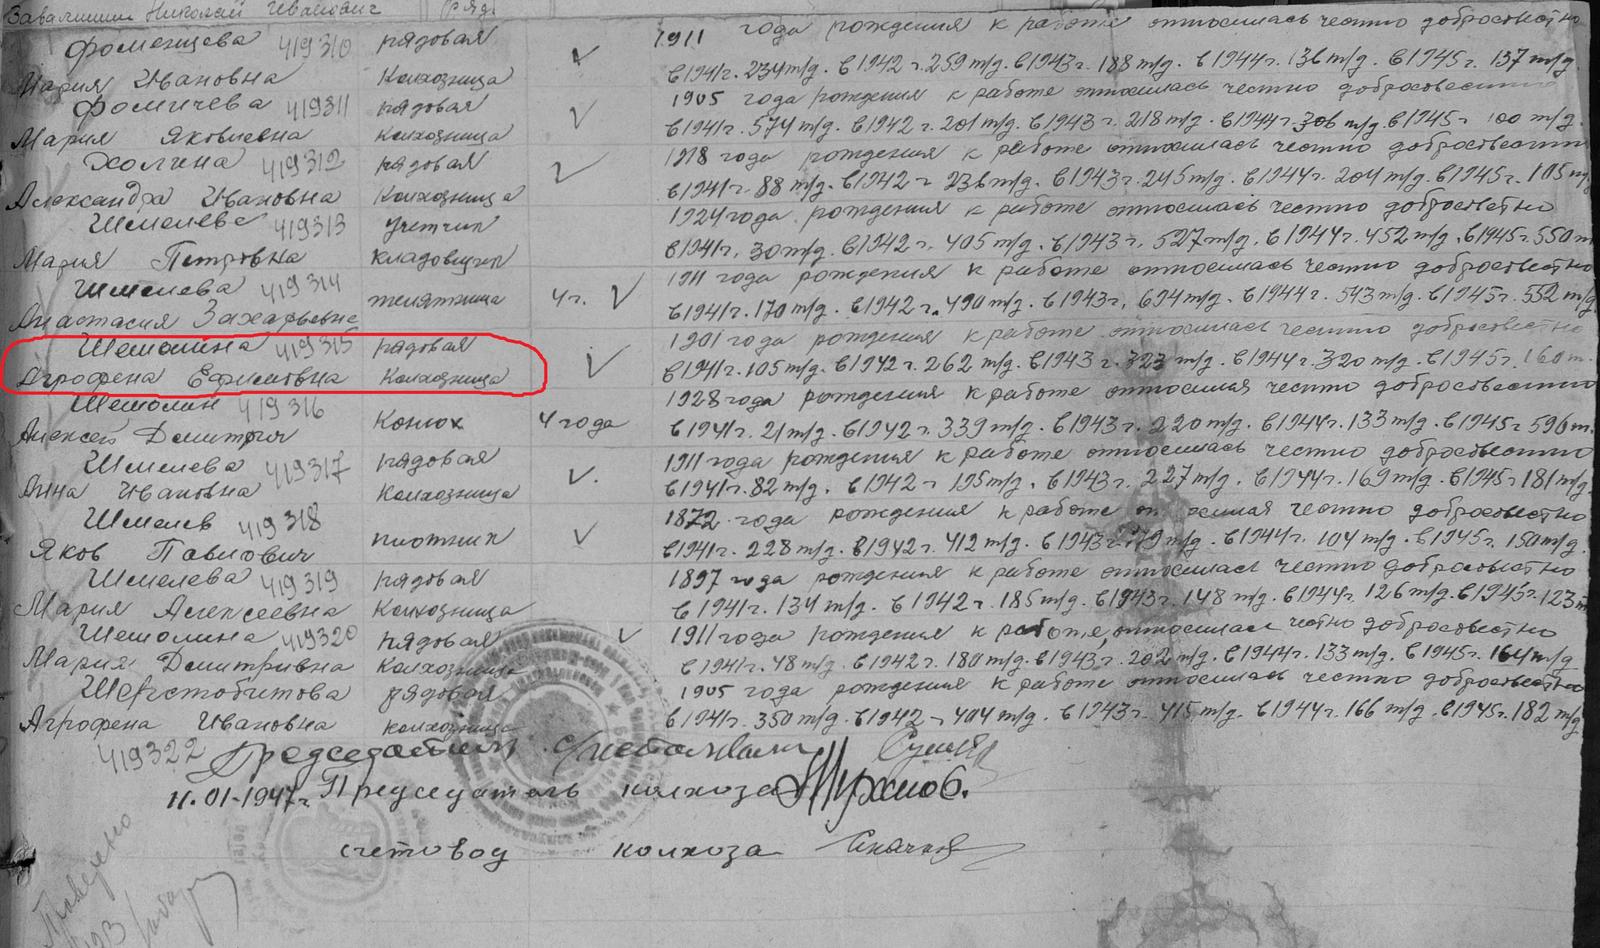 Завалишин Николай Иванович ряд.
Фоменцева 419310 рядовая 1911 года рождения к работе относилась честно добросовестно
Мария Ивановна Колхозница в 1941г. 234 т/д. в 1942 г. 259 т/д. в 1943г. 188 т/д. в 1944г. 136 т/д. в 1945г. 137 т/д.
Фомичева 419311 рядовая 1905 года рождения к работе относилась честно добросовестно
Мария Яковлевна колхозница в 1941г. 574 т/д. в 1942 г. 201 т/д. в 1943г. 218 т/д. в 1944г. 306 т/д. в 1945г 100 т/д.
Холина 419312 рядовая 1918 года рождения к работе относилась честно добросовестно
Александра Ивановна Колхозница в 1941г. 88 т/д. в 1942 г 236 т/д. в 1943г. 245 т/д. в 1944г. 204 т/д. в 1945г. 105 т/д
Шмелева 419313 учетчик 1924 года рождения к работе относилась честно добросовестно
Мария Петровна кладовщик в 1941г. 30 т/д. в 1942 г. 405 т/д. в 1943г. 527 т/д. в 1944г. 452 т/д. в 1945г. 550 т
Шмелева 419314 телятница 4 г. 1911 года рождения к работе относилась честно добросовестно
Анастасия Захарьевна в 1941г. 170 т/д. в 1942 г. 490 т/д. в 1943г. 694 т/д. в 1944г. 543 т/д. в 1945г. 552 т/д
Шемолина 419315 рядовая 1901 года рождения к работе относилась честно добросовестно
Агрофена Ефимовна Колхозница в 1941г. 105 т/д. в 1942 г. 262 т/д. в 1943 г. 323 т/д. в 1944г. 320 т/д. в 1945г. 160 т.
Шемолин 419316 Конюх 4 года 1928 года рождения к работе относился честно добросовестно
Алексей Дмитрия в 1941г. 21 т/д. в 1942г. 339 т/д. в 1943г. 220 т/д. в 1944г. 133 т/д. в 1945г 596 т.
Шмелева 419317 рядовая 1911 года рождения к работе относилась честно добросовестно
Анна Ивановна колхозница в 1941г. 82 т/д. в 1942 г 195 т/д. в 1943г. 227 т/д. в 1944г. 169 т/д. в 1945г 181 т/д.
Шмелев 419318 плотник 1872 года рождения к работе честно добросовестно
Яков Павлович в 1941г. 228 т/д. в 1942г. 412 т/д. в 1943г. 179 т/д. в 1944г. 104 т/д. в 1945г. 150 т/д.
Шмелева 419319 рядовая 1897 года рождения к работе относилась честно добросовестно
Мария Алексеевна Колхозница в 1941г. 134 т/д. в 1942г. 185 т/д. в 1943г. 148 т/д. в 1944г. 126 т/д. в 1945г. 123 т
Шемолина 419320 рядовая 1911 года рождения к работе, относилась честно добросовестно
Мария Дмитривна колхозница в 1941г. 48 т/д. в 1942г. 180 т/д. в 1943г. 202 т/д. в 1944г. 133 т/д. в 1945г. 164 т/д
Шерстобитова рядовая 1905 года рождения к работе относилась честно добросовестно
Агрофена Ивановна колхозница в 1941г. 350 т/д. в 1942 г 404 т/д. в 1943г. 415 т/д. в 1944г. 166 т/д. в 1945г. 182 т/д
419322 Председатель с/исполкома
11.01-1947г. Председатель колхоза
счетовод колхоза
Проверено